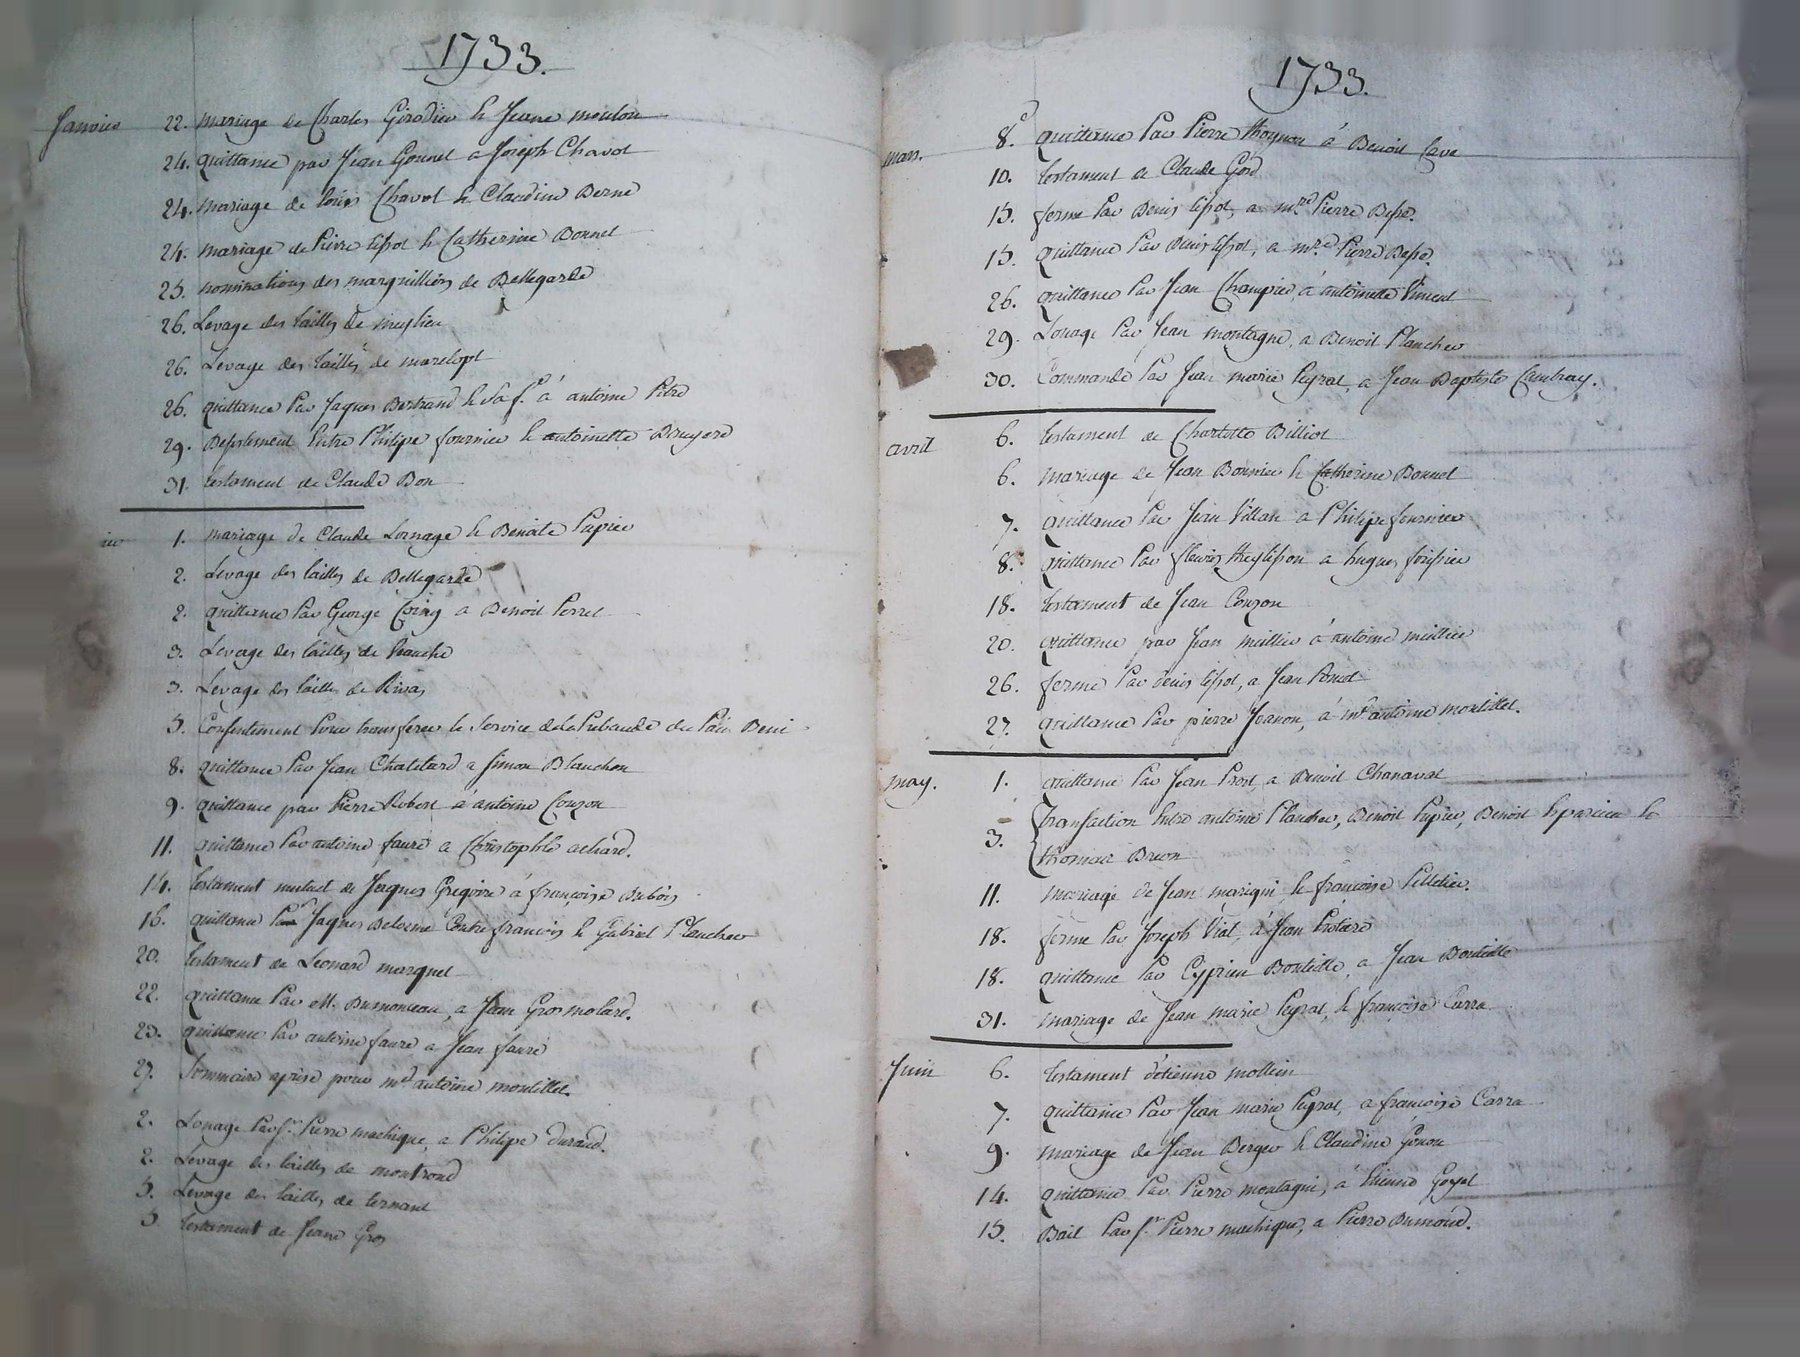 1733.
Janvier 22. mariage de Charles Girodier & Jeane moulon
24. quittance par Jean Gounel a Joseph Chavot
24. mariage de loüis Chavot & Claudine Berne
24. mariage de Pierre & Catherine Bonnet
25. nominations des marguilliers de Bellegarde
26. Levage des tailles de meylieu
26. Levage des tailles de marclopt
26. quittance Par Jaques Bertrand & Sa f.e à antoine Pitre
29. Entre Philipe fournier & antoinette Bruyere
31. testament de Claude Bon
1. mariage de Claude Lornage & Benoite Papier
2. Levage des tailles de Bellegarde
2. quittance Par George Coing a Benoit Perret
3. Levage des tailles de
3. Levage des tailles de Rivas
5. Consentement Pour transferer le Service de la Prebande du Païs Beni
8. quittance Par Jean Chatelard a Simon Blanchon
9. quittance par Pierre Robert a antoine Couzon
11. quittance Par antoine faure a Christophle achard.
14. testament mutuel de Jaques Gregoire & françoise Dubois
16. quittance Par Jaques Delorme Contre francois & Gabriel Plancher
20. testament de Leonard marquet
22. quittance Par M. Dumonceau, a Jean Grosmolard.
23. quittance Par antoine faure a Jean faure
27. Sommaire aprise pour m.e antoine montillet.
2. Louage Par s.r Pierre machique, a Philipe Durand.
2. Levage des tailles de montrond
5. Levage des tailles de ternant
5 testament de Jeane Gros
1733.
mars. 8. quittance Par Pierre thoynon à Benoit Cave
10. testament de Claude Gord
15. ferme Par Denis, a m.re Pierre Besse.
15. quittance Par Denis, a m.re Pierre Besse.
26. quittance Par Jean Champier, à antoinette Vincent
29. Louage Par Jean montagne, a Benoit Plancher
30. Commande Par Jean marie Peyrat, a Jean Baptiste
avril 6. testament de Charlotte Billiot
6. mariage de Jean Bonnier & Catherine Bonnet
7. quittance Par Jean Villan a Philipe fournier
8. quittance Par fleury a hugues
18. testament de Jean Couzon
20. quittance par Jean mullier à antoine mullier
26. ferme Par denis, a Jean
27. quittance Par pierre Jeanon, à m.e antoine montillet.
may. 1. quittance Par Jean Prost, a Benoit Chanavat
3. transaction Entre antoine Plancher, Benoit Papier, Benoit &
thomas Breon
11. mariage de Jean marigni & françoise Pelletier.
18. ferme Par Joseph Vial, à Jean
18. quittance Par Cyprien Bouteille, a Jean Bouteille
31. mariage de Jean marie Peyrat, & françoise Carra
Juin 6. testament d'etienne mollein
7. quittance Par Jean marie Peyrat, a françoise Carra
9. mariage de Jean Berger & Claudine Gonon
14. quittance Par Pierre montagni, à Etienne Goyet
15. Bail Par s.r Pierre machique, a Pierre Dumond.